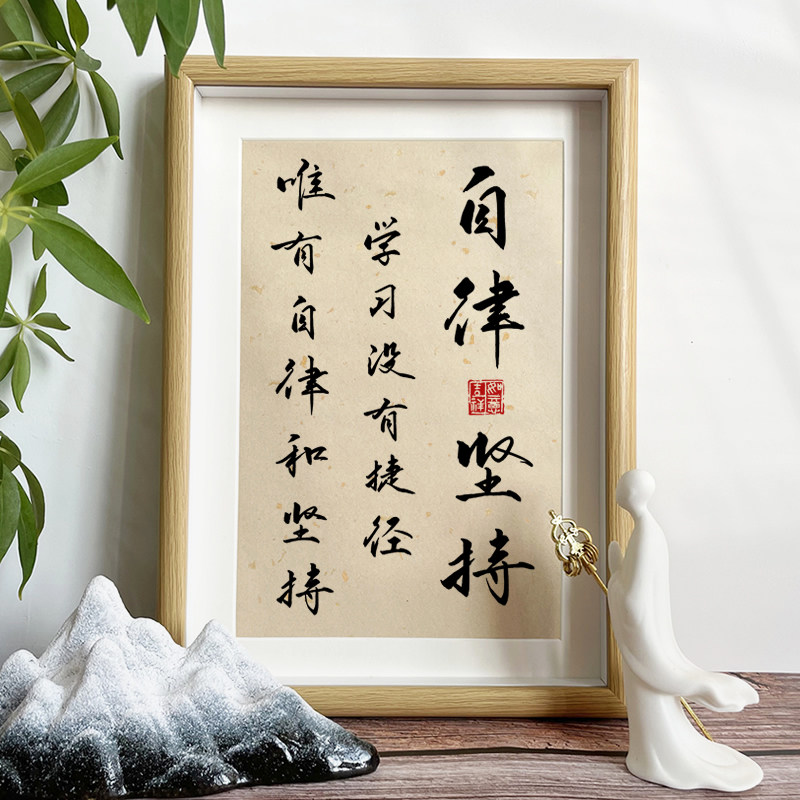 自律
坚持
如意吉祥
学习没有捷径
唯有自律和坚持